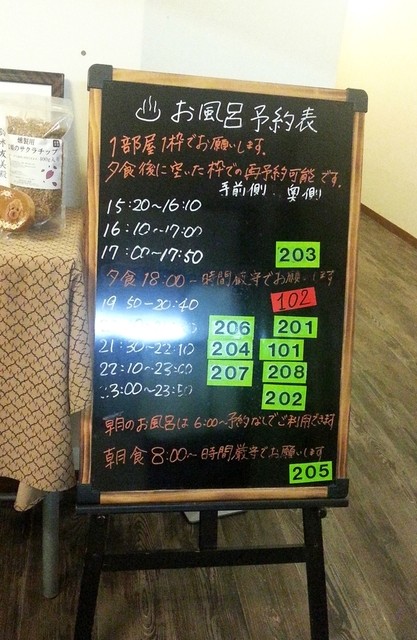 お風呂予約表
1部屋1枠でお願いします。
夕食後に空いた枠での再予約可能です。
手前側 奥側
15:20〜16:10
16:10〜17:00
17:00〜17:50 203
夕食18:00〜時間厳守でお願いします
19:50〜20:40 102
206 201
21:30〜22:10 204 101
22:10〜23:00 207 208
23:00〜23:50 202
朝のお風呂は6:00〜予約なしでご利用できます
朝食8:00〜時間厳守でお願いします
205
燻製用
サクラチップ